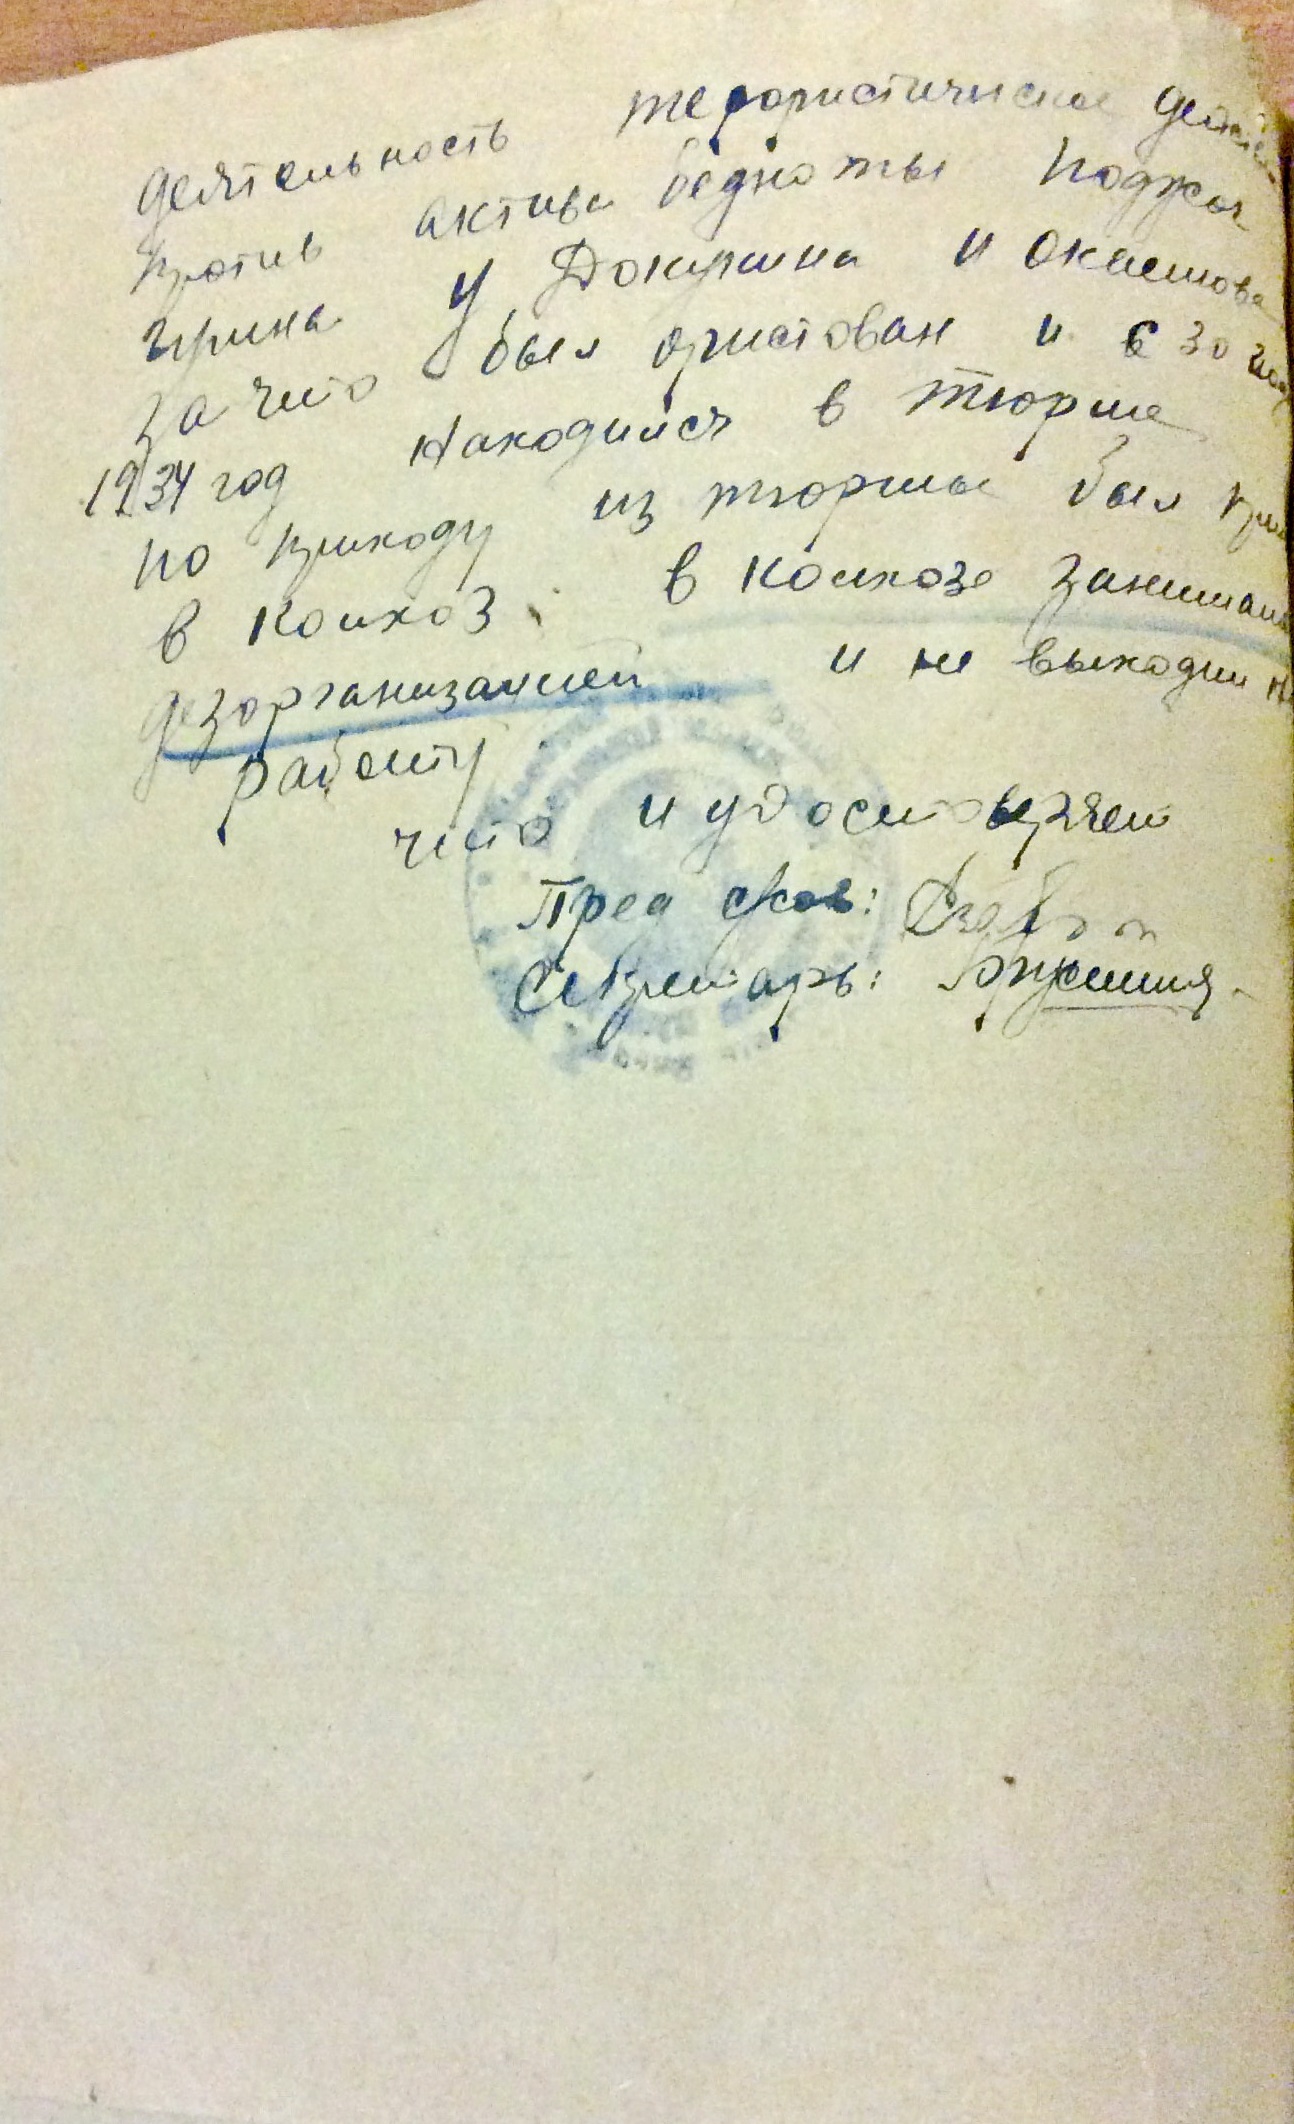 деятельность терористическое
против актива бедноты поджог
у Докукина и
за что был аристован и с 30
1934 год находился в тюрме
по приходу из тюрмы был
в колхоз. в колхозе занимался
дезорганизацией и не выходил на
работу
что и удостоверяем
Пред с/сов:
Секретарь: